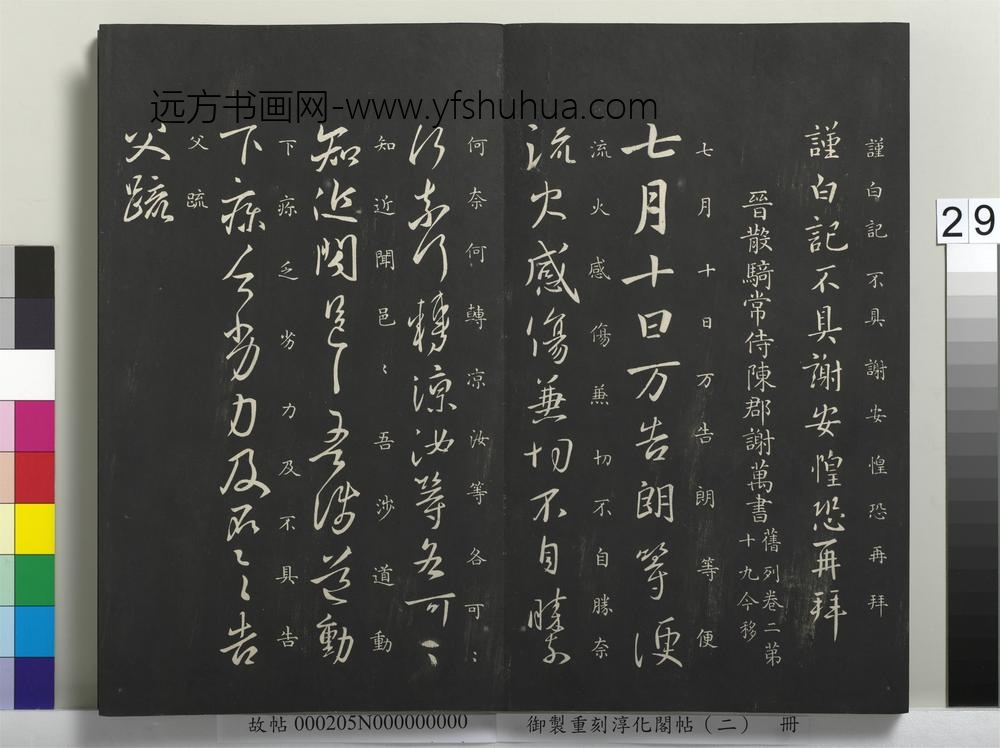 远方书画网-www.yfshuhua.com
謹白記不具謝安惶恐再拜
謹白記不具謝安惶恐再拜
晉散騎常侍陳郡謝萬書
舊列卷二第
十九今移
七月十日万告朗等便
七月十日万告朗等便
流火感傷兼切不自勝奈
流火感傷兼切不自勝奈
何奈何轉凉汝等各可〻
何奈何轉凉汝等各可〻
知近聞邑〻吾涉道動
知近聞邑〻吾涉道動
下疾乏劣力及不具告
下疾乏劣力及不具告
父疏
父疏
29
故帖 000205N000000000
御製重刻淳化閣帖（二） 冊